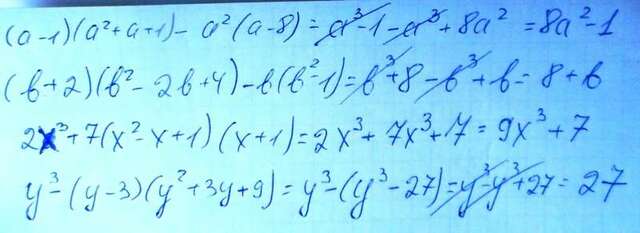 (a-1)(a²+a+1)-a²(a-8)=a³-1-a³+8a²=8a²-1
(b+2)(b²-2b+4)-b(b²-1)=b³+8-b³+b=8+b
2x³+7(x²-x+1)(x+1)=2x³+7x³+7=9x³+7
y³-(y-3)(y²+3y+9)=y³-(y³-27)=y³-y³+27=27